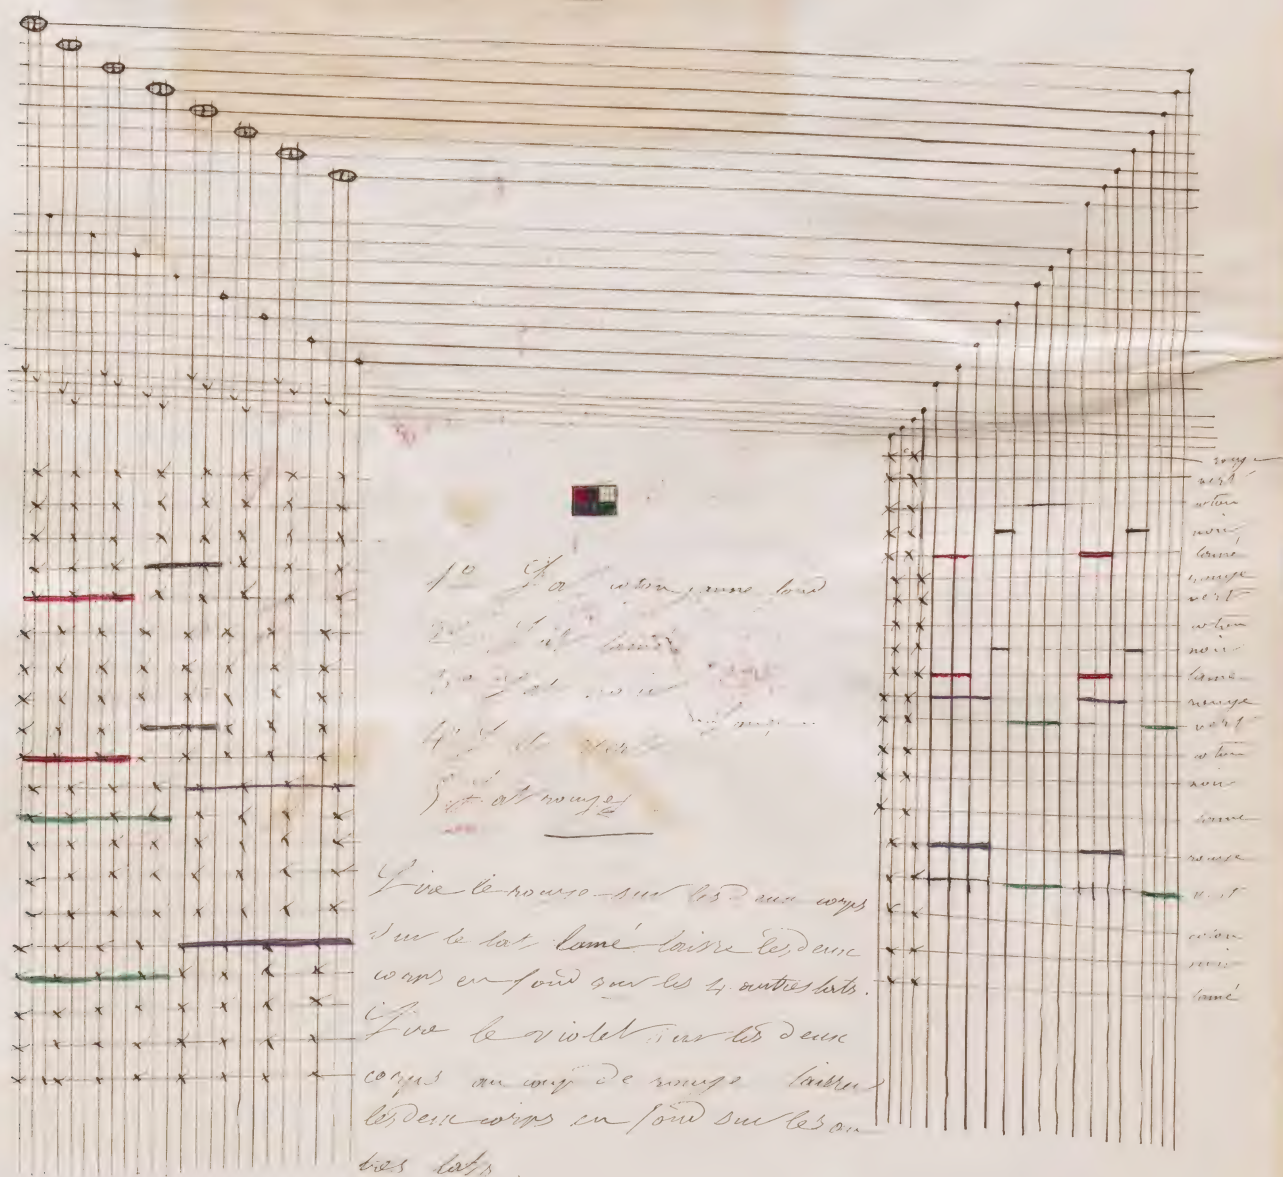 1º Lat coton jaune fond
2º Lat lamé
3º Lat noir
4º Lat vert
5º Lat rouge
Lire le rouge sur les deux corps
sur le lat lamé laisse les deux
corps en fond sur les 4 autres lats.
Lire le violet sur les deux
corps au coup de rouge laisser
les deux corps en fond sur les au
tres lats.
rouge
vert
coton
noir
lamé
rouge
vert
coton
noir
lamé
rouge
vert
coton
noir
lamé
rouge
vert
coton
noir
lamé